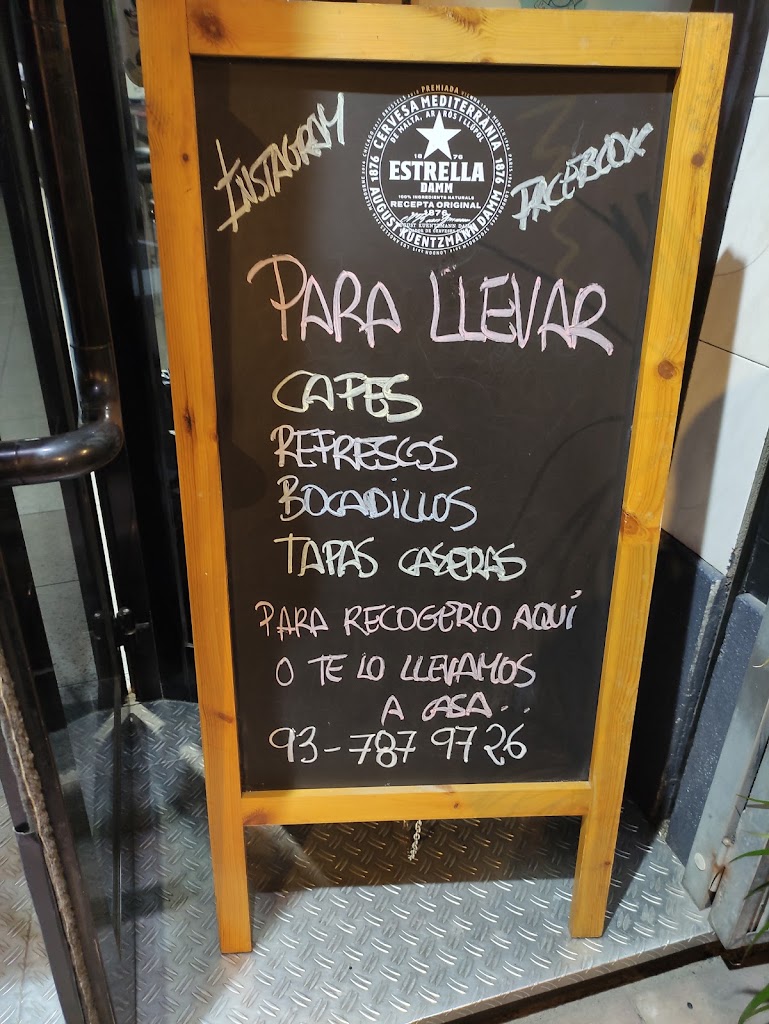 INSTAGRAM
PREMIADA
CERVESA MEDITERRÀNIA
DE MALTA, ARRÒS I LLÚPOL
1876
1876
1876
ESTRELLA
DAMM
100% INGREDIENTS NATURALS
RECEPTA ORIGINAL
1876
AUGUST KUENTZMANN DAMM
FACEBOOK
PARA LLEVAR
CAFES
REFRESCOS
BOCADILLOS
TAPAS CASERAS
PARA RECOGERLO AQUÍ
O TE LO LLEVAMOS
A CASA..
93-787 97 26